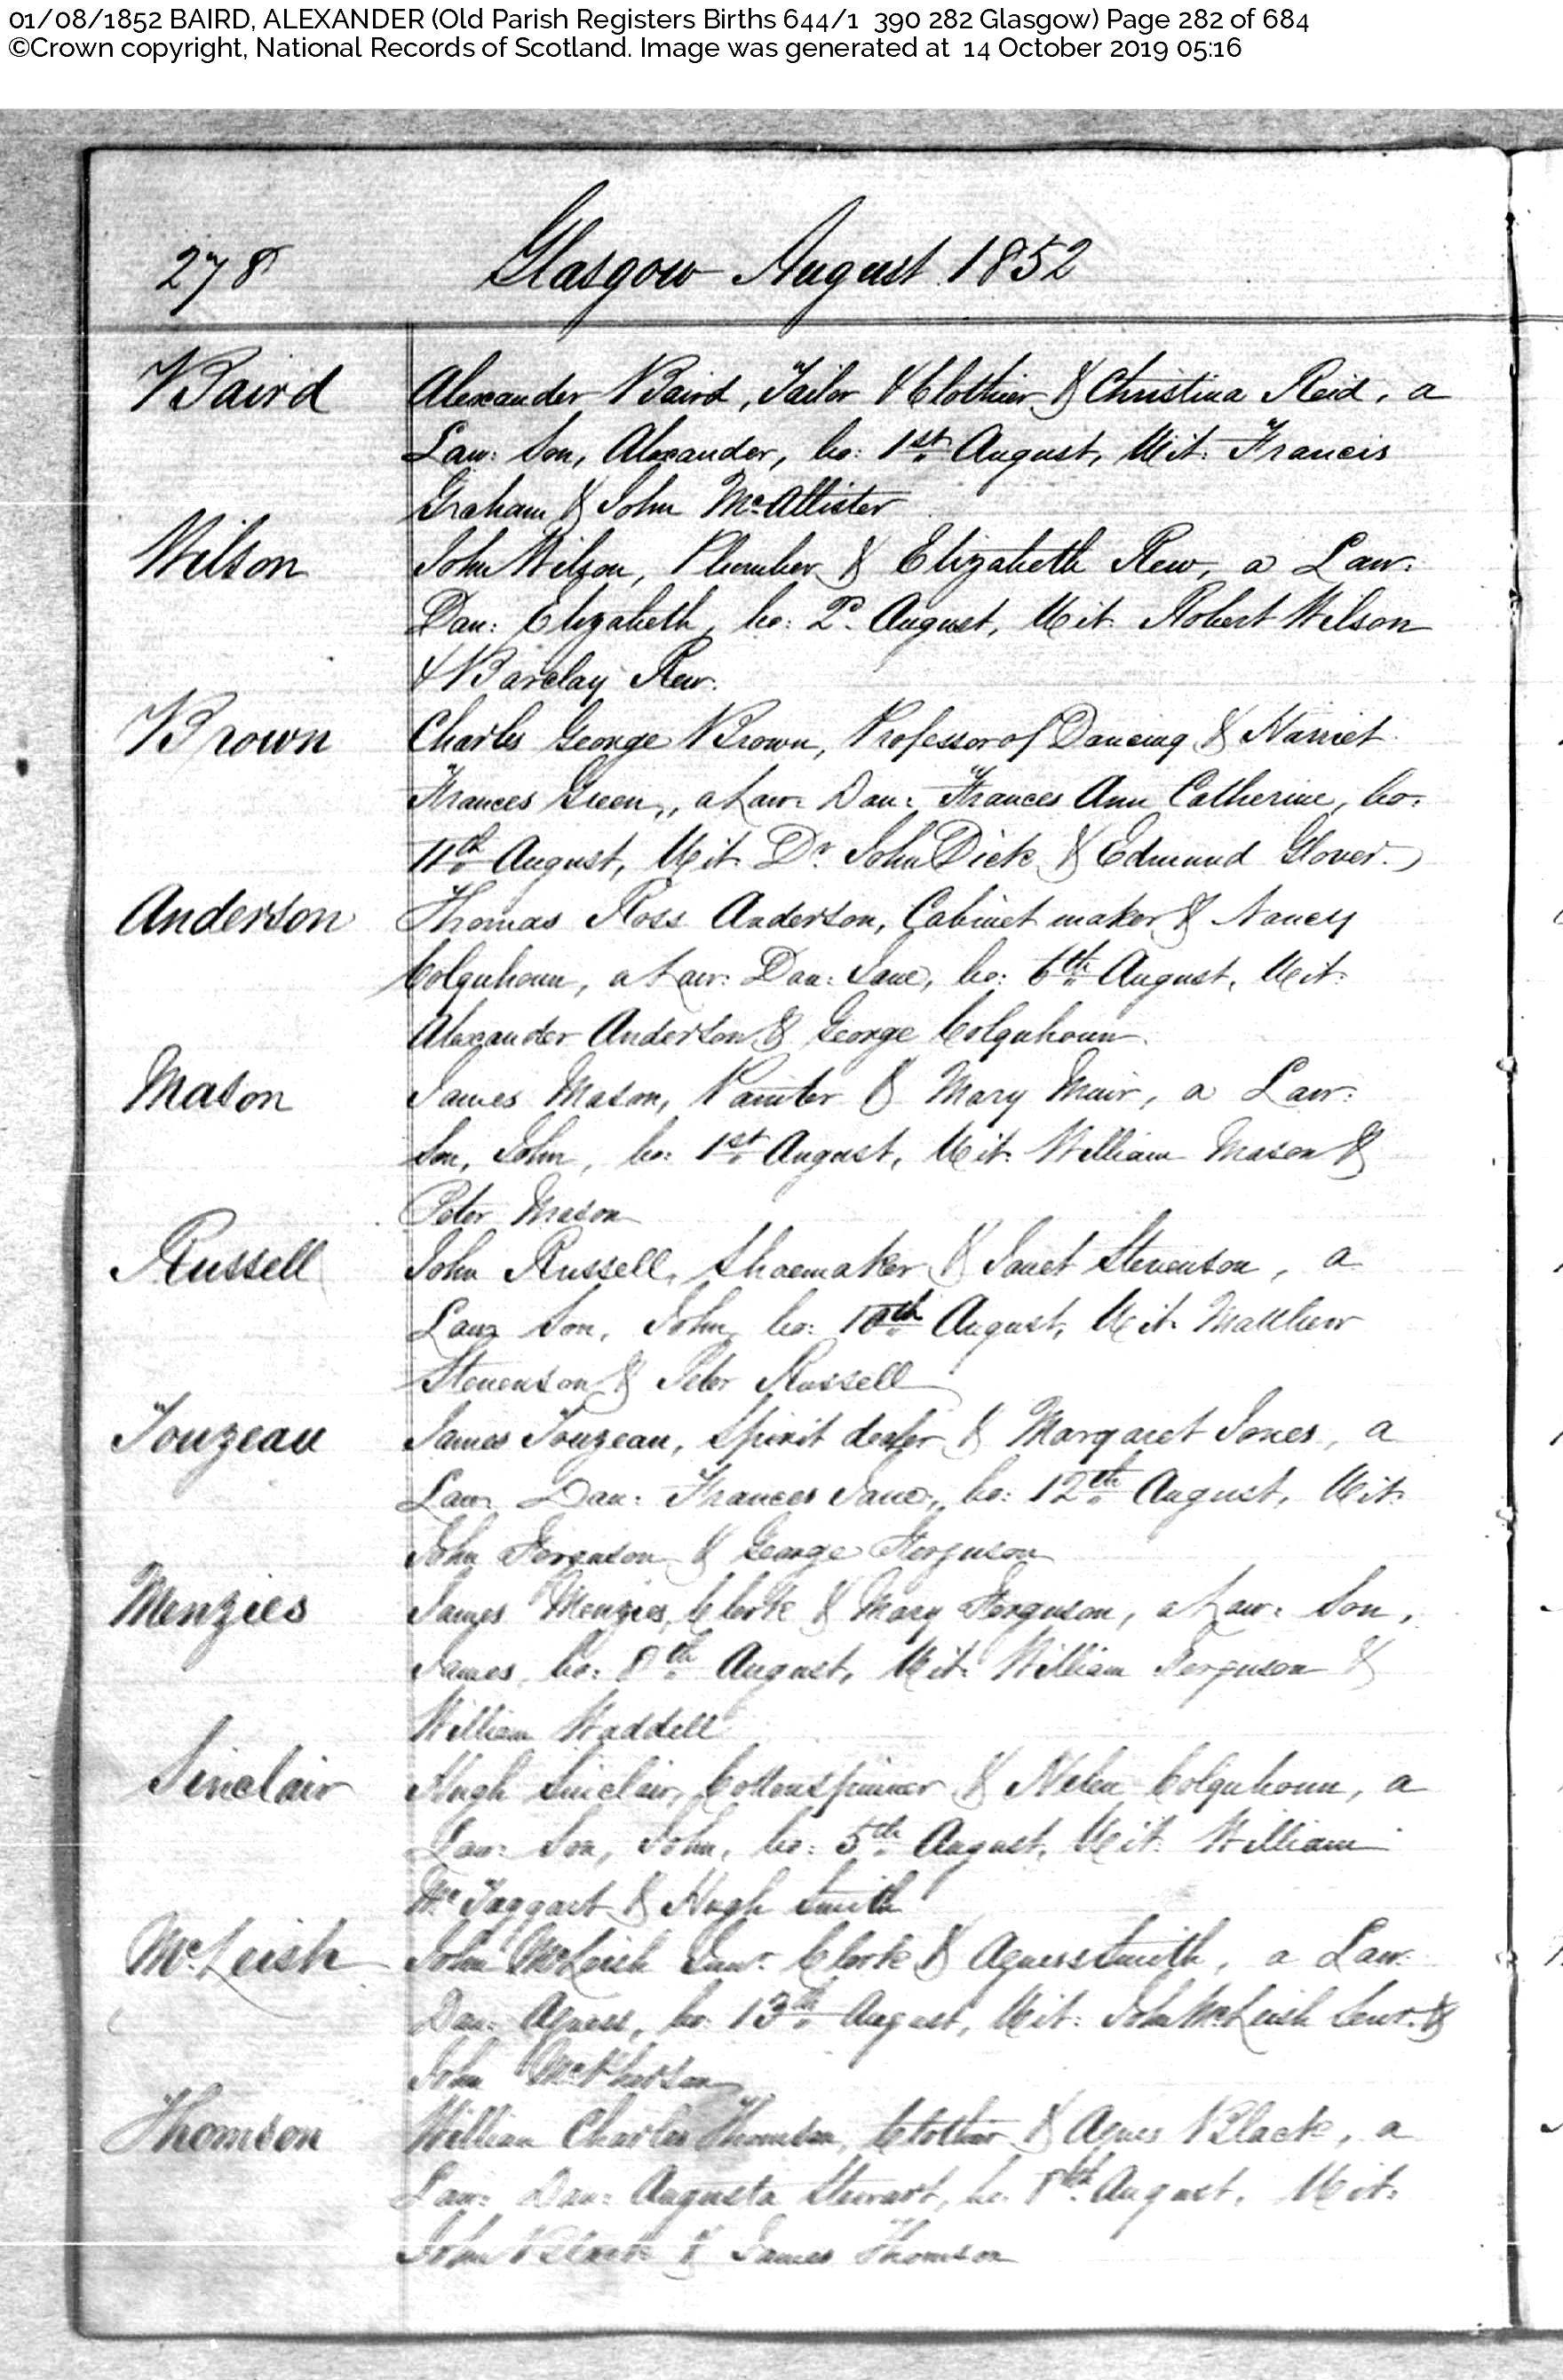 01/08/1852 BAIRD, ALEXANDER (Old Parish Registers Births 644/1 390 282 Glasgow) Page 282 of 684
©Crown copyright, National Records of Scotland. Image was generated at 14 October 2019 05:16
278 Glasgow August 1852
Baird Alexander Baird, Tailor & Clothier & Christina Reid, a
Law: Son, Alexander, bo: 1st August, Wit: Francis
Graham & John McAllister
Wilson John Wilson, Plumber & Elizabeth Rew, a Law:
Dau: Elizabeth, bo: 2d August, Wit: Robert Wilson
& Barclay Rew.
Brown Charles George Brown, Professor of Dancing & Harriet
Frances Green, a Law: Dau: Frances Ann Catherine, bo:
11th August, Wit: Dr John Dick & Edmund Glover.
Anderson Thomas Ross Anderson, Cabinet maker & Nancy
Colquhoun, a Law: Dau: Jane, bo: 6th August, Wit:
Alexander Anderson & George Colquhoun
Mason James Mason, Painter & Mary Muir, a Law:
Son, John, bo: 1st August, Wit: William Mason &
Peter Mason
Russell John Russell, Shoemaker & Janet Stevenson, a
Law: Son, John, bo: 10th August, Wit: Matthew
Stevenson & Peter Russell
Touzeau James Touzeau, Spirit dealer & Margaret Jones, a
Law: Dau: Frances Jane, bo: 12th August, Wit:
John Ferguson & George Ferguson
Menzies James Menzies, Clerk & Mary Ferguson, a Law: Son,
James, bo: 8th August, Wit: William Ferguson &
William Waddell
Sinclair Hugh Sinclair, Cottonspinner & Helen Colquhoun, a
Law: Son, John, bo: 5th August, Wit: William
McTaggart & Hugh Smith
McLeish John McLeish Junr. Clerk & Agness Smith, a Law:
Dau: Agness, bo: 13th August, Wit: John McLeish Senr. &
John McPherson
Thomson William Charles Thomson, Clothier & Agnes Black, a
Law: Dau: Augusta Stewart, bo: 8th August, Wit:
John Black & James Thomson